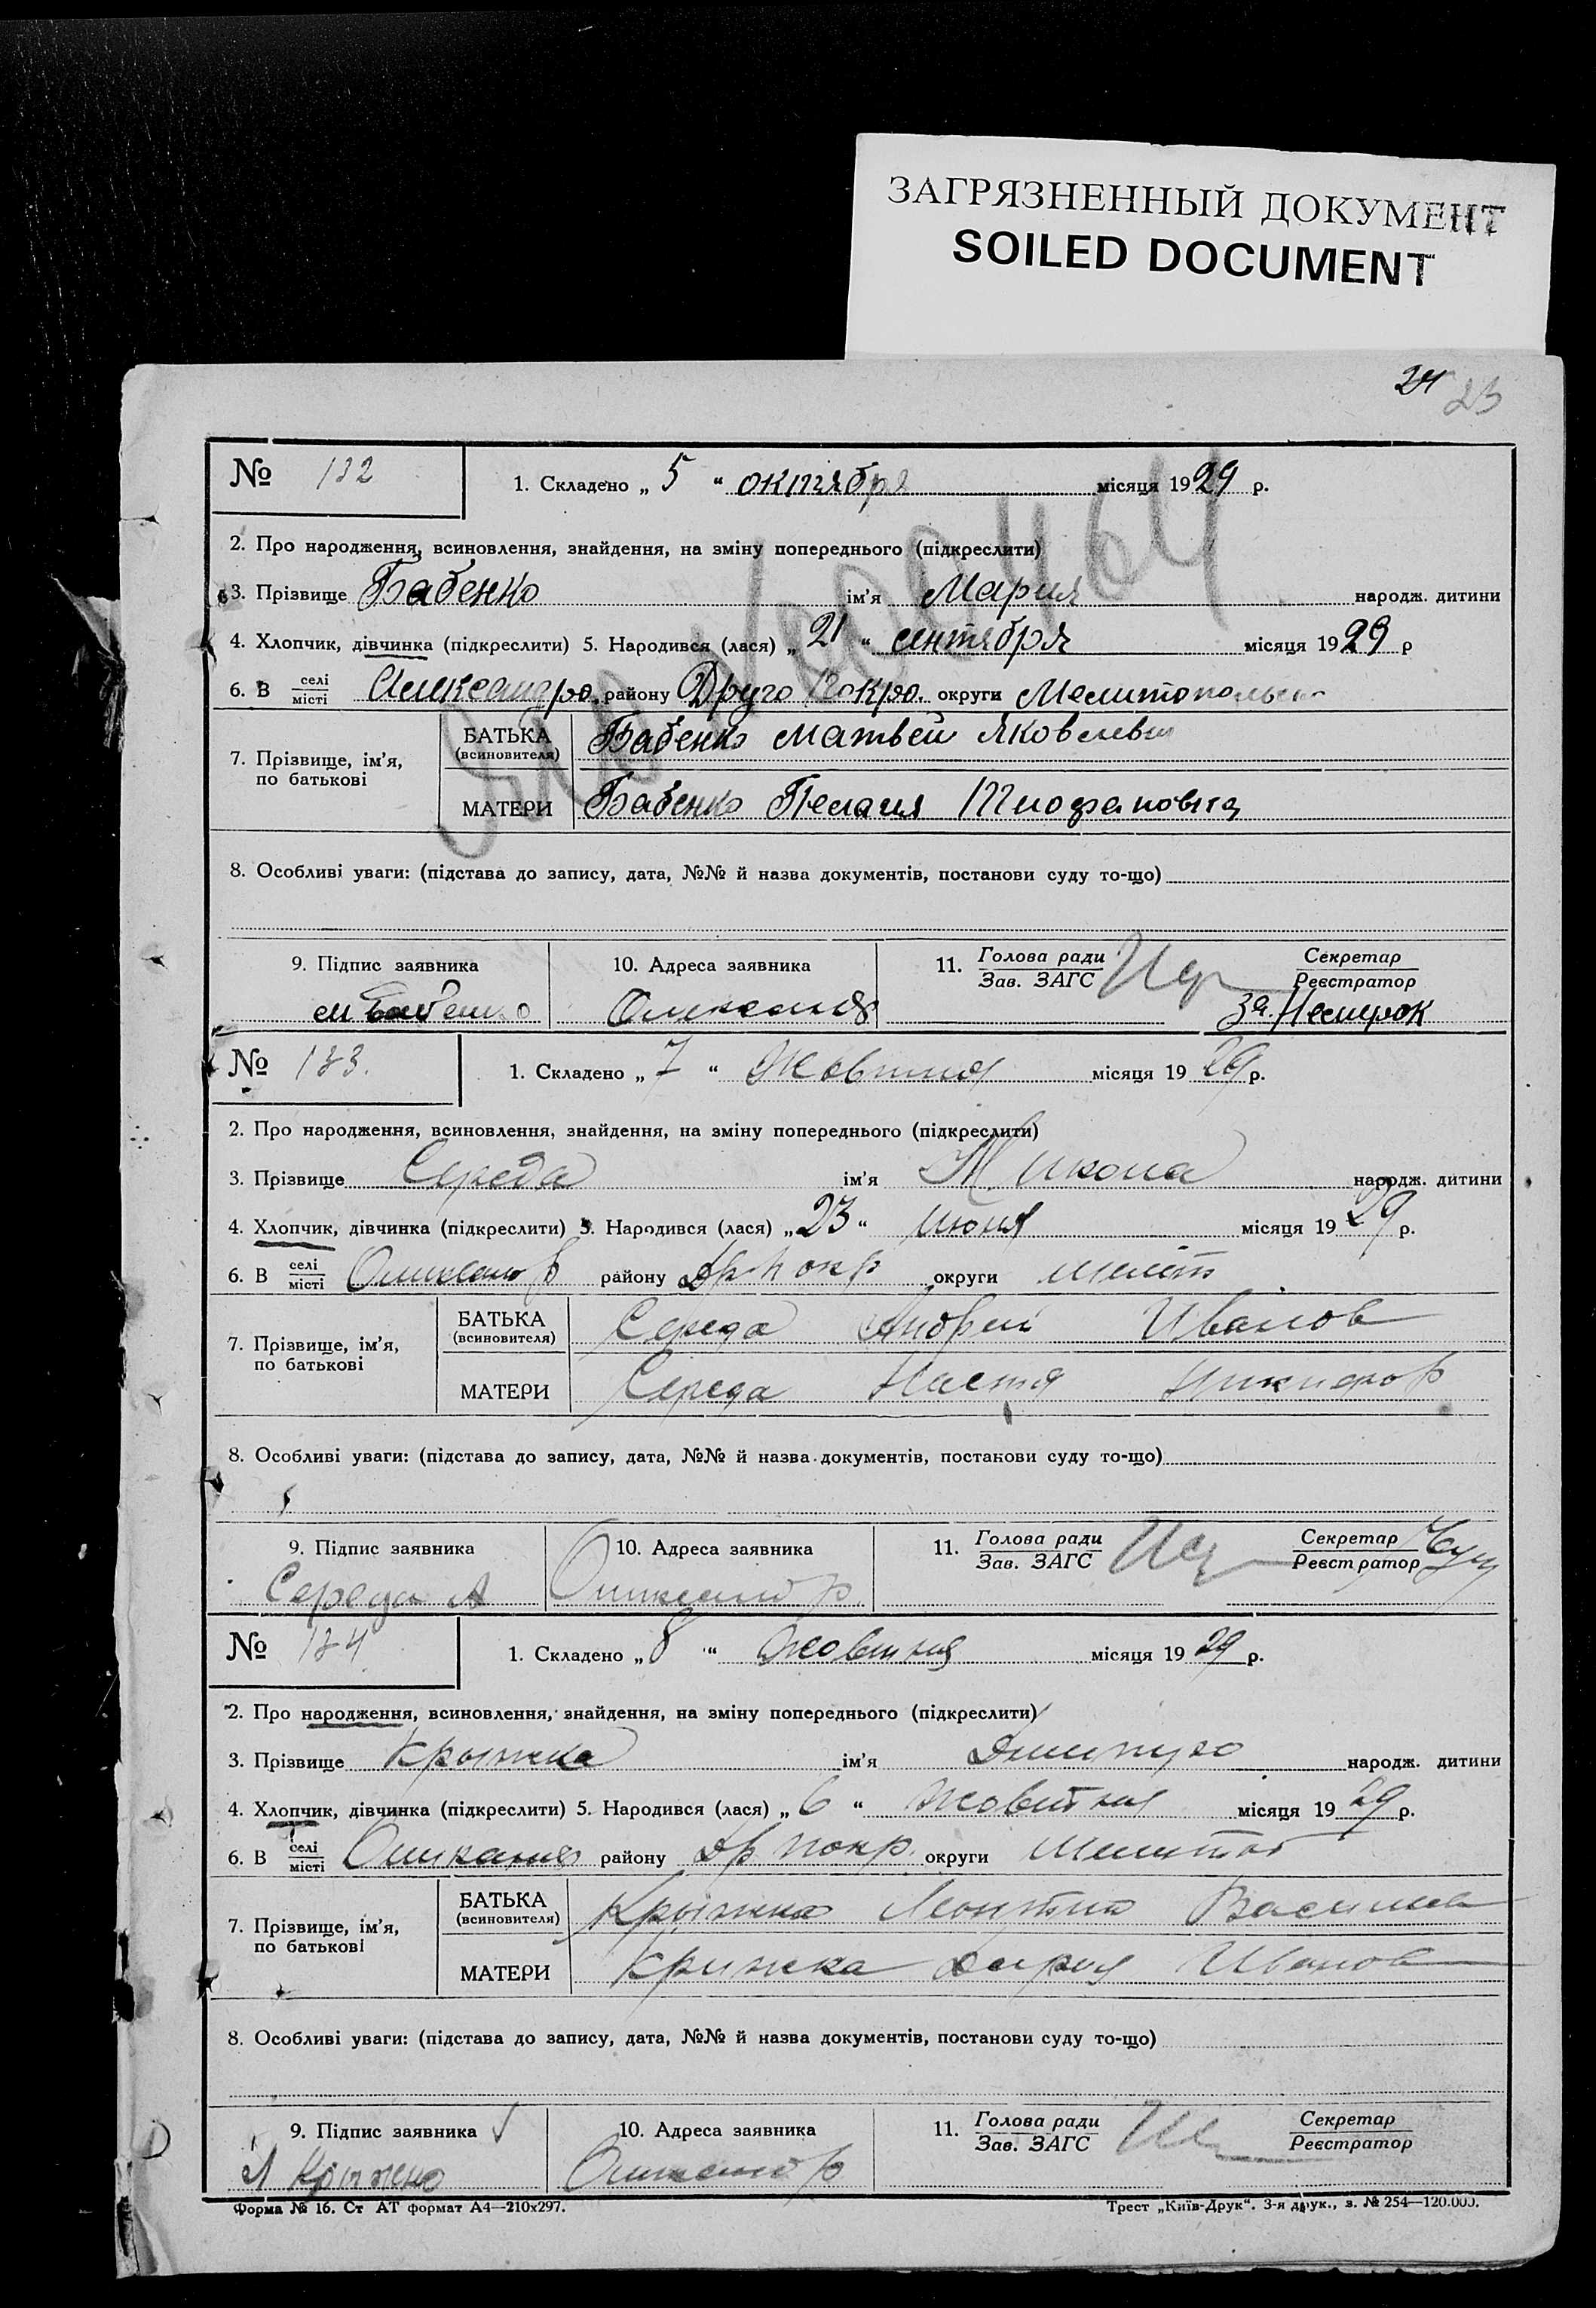 ЗАГРЯЗНЕННЫЙ ДОКУМЕНТ
SOILED DOCUMENT
24 23
№ 132
1. Складено „ 5 “ октября місяця 1929 р.
2. Про народження, всиновлення, знайдення, на зміну попереднього (підкреслити)
3. Прізвище Бабенко ім'я Мария народж. дитини
4. Хлопчик, дівчинка (підкреслити) 5. Народився (лася) „ 21 “ сентября місяця 1929 р
6. В селі/місті Александро. району Друго Покро. округи Мелитопольск
7. Прізвище, ім'я, по батькові
БАТЬКА (всиновителя) Бабенко Матвей Яковлевич
МАТЕРИ Бабенко Пелагия
8. Особливі уваги: (підстава до запису, дата, №№ й назва документів, постанови суду то-що)
9. Підпис заявника 10. Адреса заявника 11. Голова ради/Зав. ЗАГС Секретар/Реєстратор
м Бабенко за.
№ 133.
1. Складено „ 7 “ Жовтня місяця 1929 р.
2. Про народження, всиновлення, знайдення, на зміну попереднього (підкреслити)
3. Прізвище Середа ім'я Микола народж. дитини
4. Хлопчик, дівчинка (підкреслити) 5. Народився (лася) „ 23 “ июня місяця 1929 р.
6. В селі/місті району Др Покр округи Меліт
7. Прізвище, ім'я, по батькові
БАТЬКА (всиновителя) Середа Андрей Иванов
МАТЕРИ Середа Настя Никифор
8. Особливі уваги: (підстава до запису, дата, №№ й назва документів, постанови суду то-що)
9. Підпис заявника 10. Адреса заявника 11. Голова ради/Зав. ЗАГС Секретар/Реєстратор
Середа А
№ 134
1. Складено „ 8 “ жовтня місяця 1929 р.
2. Про народження, всиновлення, знайдення, на зміну попереднього (підкреслити)
3. Прізвище Крыжка ім'я народж. дитини
4. Хлопчик, дівчинка (підкреслити) 5. Народився (лася) „ 6 “ жовтня місяця 1929 р.
6. В селі/місті району Др Покр. округи Мелитоп
7. Прізвище, ім'я, по батькові
БАТЬКА (всиновителя) Крыжка Василиев
МАТЕРИ Крижка Дария Иванов
8. Особливі уваги: (підстава до запису, дата, №№ й назва документів, постанови суду то-що)
9. Підпис заявника 10. Адреса заявника 11. Голова ради/Зав. ЗАГС Секретар/Реєстратор
Форма № 16. Ст АТ формат А4—210x297.
Трест „Київ-Друк“. 3-я друк., з. № 254—120.000.